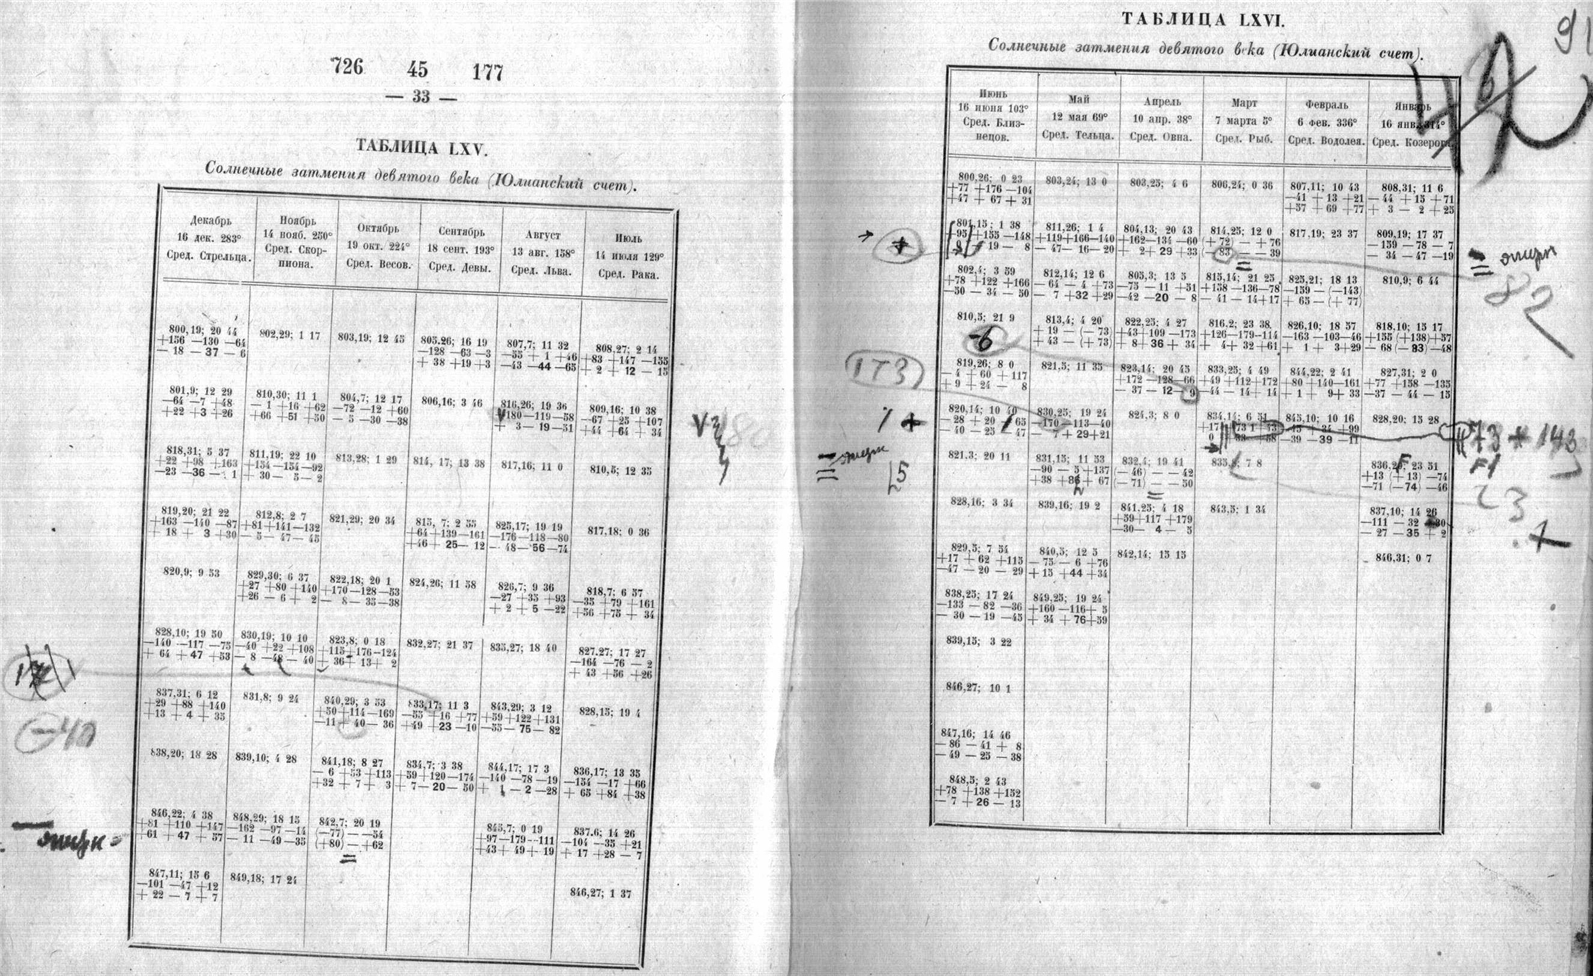 726 45 177
— 33 —
ТАБЛИЦА LXV.
Солнечные затмения девятого века (Юлианский счет).
Декабрь
16 дек. 283°
Сред. Стрельца.
800,19; 20 44
+136 —130 —64
— 18 — 37 — 6
801,9; 12 29
—64 —7 +48
+22 +3 +26
818,31; 5 37
+22 +98 +163
—23 —36 — 1
819,20; 21 22
+163 —140 —87
+ 18 + 3 +30
820,9; 9 53
828,10; 19 50
—140 —117 —75
+ 64 + 47 +53
837,31; 6 12
+29 +88 +140
+13 + 4 + 35
838,20; 18 28
846,22; 4 38
+81 +110 +147
+61 + 47 + 57
847,11; 15 6
—101 —47 +12
+ 22 — 7 + 7
Ноябрь
14 нояб. 250°
Сред. Скор-
пиона.
802,29; 1 17
810,30; 11 1
— 1 +16 +62
+66 —51 +50
811,19; 22 10
+154 —154 —92
+ 30 — 5 — 2
812,8; 2 7
+81 +141 —132
— 5 — 47 — 45
829,30; 6 37
+27 +80 +140
+26 — 6 + 2
830,19; 10 10
—40 +22 +108
831,8; 9 24
839,10; 4 28
848,29; 18 15
—162 —97 —14
— 11 —49 —35
849,18; 17 24
Октябрь
19 окт. 224°
Сред. Весов.
803,19; 12 45
804,7; 12 17
—72 —12 +60
— 5 —30 —38
813,28; 1 29
821,29; 20 34
822,18; 20 1
+170 —128 —53
— 8 — 35 —38
823,8; 0 18
+115 +176 —124
+ 36 + 13 + 2
840,29; 3 53
+50 +114 —169
—11 — 40 — 36
841,18; 8 27
— 6 +53 +113
+32 + 7 + 3
842,7; 20 19
(—77) — —54
(+80) — +62
Сентябрь
18 сент. 193°
Сред. Девы.
805,26; 16 19
—128 —63 —3
+ 38 +19 +3
806,16; 3 46
814, 17; 13 38
815, 7; 2 55
+64 +139 —161
+46 + 25 — 12
824,26; 11 58
832,27; 21 37
833,17; 11 3
—55 +16 +77
+49 +23 —10
834,7; 3 38
+59 +120 —174
+ 7 — 20 — 50
Август
13 авг. 158°
Сред. Льва.
807,7; 11 32
—55 + 1 +46
—43 —44 —65
816,26; 19 36
180 —119 —58
+ 3 — 19 —51
817,16; 11 0
825,17; 19 19
—176 —118 —80
— 48 — 56 —74
826,7; 9 36
—27 +35 +93
+ 2 + 5 —22
835,27; 18 40
843,29; 3 12
+59 +122 +131
—55 — 75 — 82
844,17; 17 3
—140 —78 —19
845,7; 0 19
+97 —179 —111
+43 + 49 + 19
Июль
14 июля 129°
Сред. Рака.
808,27; 2 14
+83 +147 —155
+ 2 + 12 — 15
809,16; 10 38
—67 +25 +107
+44 +64 + 34
810,5; 12 35
817,18; 0 36
818,7; 6 57
—35 +79 +161
+56 +75 + 34
827,27; 17 27
—164 —76 — 2
+ 43 +56 +26
828,15; 19 4
836,17; 13 35
—154 —17 +66
+ 65 +84 +38
837.6; 14 26
—104 —35 +21
+ 17 +28 — 7
846,27; 1 37
—40
91
ТАБЛИЦА LXVI.
Солнечные затмения девятого века (Юлианский счет).
Июнь
16 июня 103°
Сред. Близ-
нецов.
800,26; 0 23
+77 +176 —104
+47 + 67 + 31
801,15; 1 38
—95 +155 —148
802,4; 3 59
+78 +122 +166
—50 — 34 — 50
810,5; 21 9
819,26; 8 0
— 4 + 60 +117
+ 9 + 24 — 8
820,14; 10 40
— 28 + 20 65
— 40 — 23 47
821,3; 20 11
828,16; 3 34
829,5; 7 54
+17 + 62 +115
—47 — 20 — 29
838,25; 17 24
—133 — 82 —36
— 30 — 19 —45
839,15; 3 22
846,27; 10 1
847,16; 14 46
— 86 — 41 + 8
— 49 — 25 — 38
848,5; 2 43
+78 +138 +152
— 7 + 26 — 13
Май
12 мая 69°
Сред. Тельца.
803,24; 13 0
811,26; 1 4
+119 +166 —140
— 47 — 16 — 20
812,14; 12 6
— 64 — 4 +73
— 7 +32 +29
813,4; 4 20
+ 19 — (— 73)
+ 43 — (+ 73)
821,5; 11 35
830,25; 19 24
170 —113 —40
7 + 29 +21
831,15; 11 53
—90 — 5 +137
839,16; 19 2
840,5; 12 5
— 75 — 6 +76
+ 15 +44 +34
849,25; 19 24
+160 —116 + 5
+ 34 + 76 +59
Апрель
10 апр. 38°
Сред. Овна.
803,25; 4 6
804,13; 20 43
+162 —134 —60
+ 2 + 29 +33
805,3; 13 5
—75 — 11 +51
—42 —20 — 8
822,25; 4 27
+43 +109 —173
+ 8 + 36 + 34
823,14; 20 45
+172 —128 —66
— 37 — 12 — 9
824,3; 8 0
832,4; 19 41
(— 46) — — 42
(— 71) — — 50
841,25; 4 18
+59 +117 +179
—30 — 4 — 5
842,14; 15 15
Март
7 марта 5°
Сред. Рыб.
806,24; 0 36
814,25; 12 0
+ 72) — + 76
(— 83) — — 39
815,14; 21 25
+158 —136 —78
— 41 — 14 +17
816,2; 23 38
+126 —179 —114
+ 4 + 32 +61
833,25; 4 49
+49 +112 +172
—44 — 14 + 14
834,14; 6 51
7 8
843,5; 1 34
Февраль
6 фев. 336°
Сред. Водолея.
807,11; 10 43
—41 + 13 +21
+57 + 69 +77
817,19; 23 37
825,21; 18 13
—159 — (—143)
+ 65 — (+ 77)
826,10; 18 57
—163 —103 —46
+ 1 + 3 +29
844,22; 2 41
+80 +140 —161
+ 1 + 9 + 33
845,10; 10 16
—39 —39 —11
Январь
16 янв. 314°
Сред. Козерога
808,31; 11 6
— 44 + 15 +71
+ 3 — 2 + 25
809,19; 17 37
—159 —78 — 7
— 34 —47 —19
810,9; 6 44
818,10; 15 17
+155 (+138) +57
— 68 (— 83) —48
827,31; 2 0
+77 +158 —135
—37 — 44 — 15
828,20; 15 28
23 51
+13 (+ 13) —74
—71 (—74) —46
837,10; 14 26
—111 — 32
— 27 — 35 + 2
846,31; 0 7
82
173
-6
15
73 * 143
F1
23